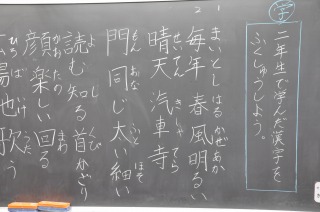 学
二年生で学んだ漢字を
ふくしゅうしよう。
2 1
まいとし はる かぜ あか
毎年 春風 明るい
せいてん きしゃ てら
晴天 汽車 寺
もん おな ふと ほそ
門 同じ 太い 細い
よ し くび
読む 知る 首かざり
かお たの まわ
顔 楽しい 回る
場 池 歌う